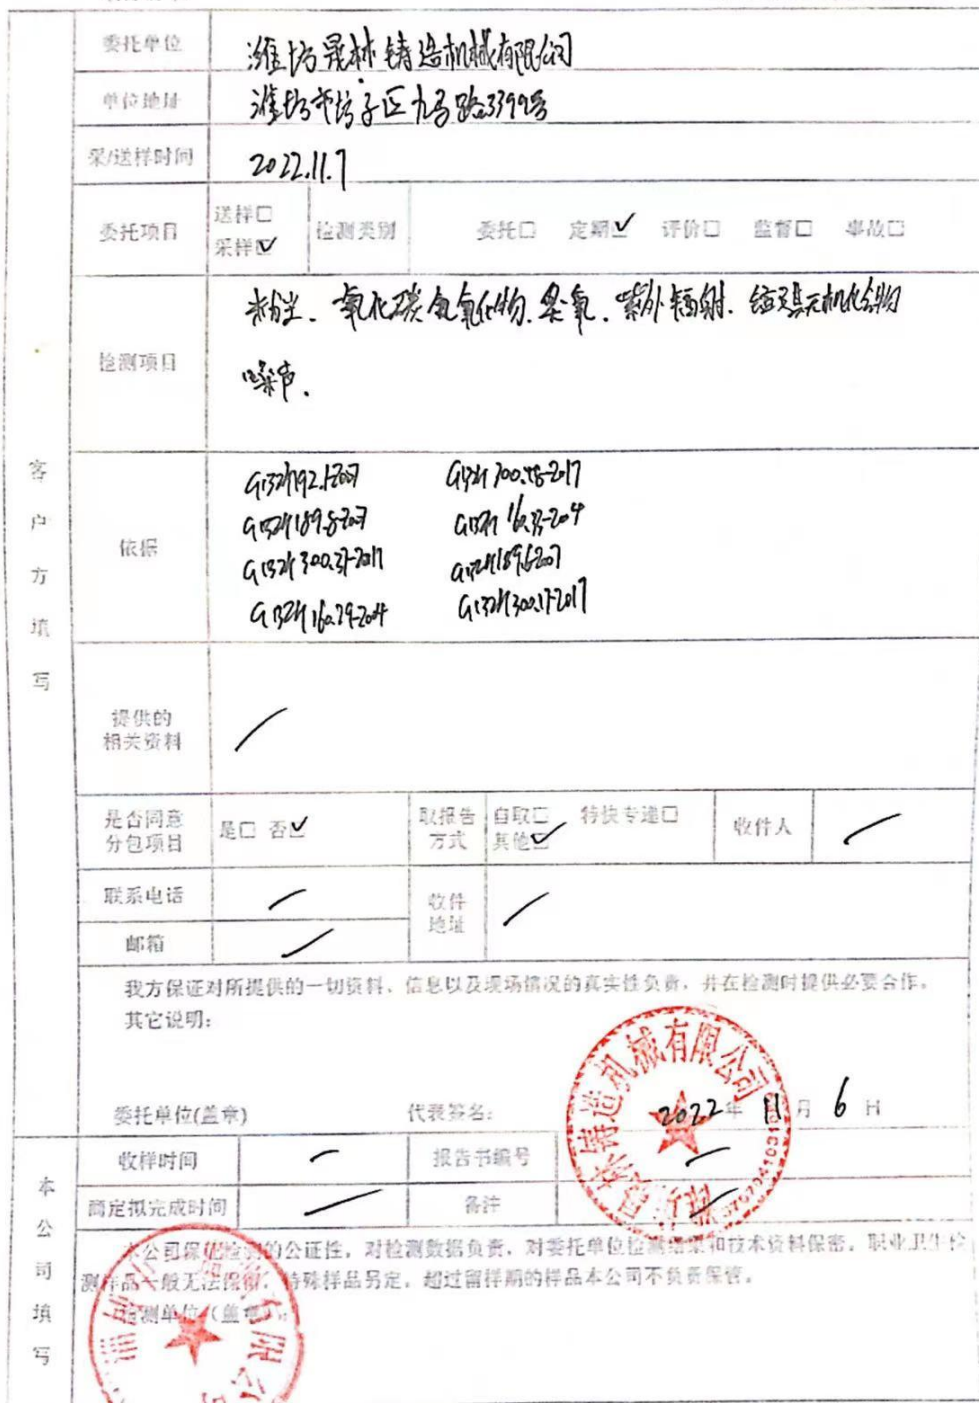 委托单位 潍坊晟林铸造机械有限公司
单位地址 潍坊市坊子区九马路3399号
采/送样时间 2022.11.7
委托项目 送样□ 采样☑ 检测类别 委托□ 定期☑ 评价□ 监督□ 事故□
检测项目 粉尘、一氧化碳、氮氧化物、臭氧、紫外辐射、锰及其无机化合物
噪声、
客户方填写
依据 GBZ/T192.1-2007 GBZ/T300.48-2017
GBZ/T189.8-2007
GBZ/T300.37-2017 GBZ/T189.6-2007
GBZ/T160.29-2004 GBZ/T300.17-2017
提供的
相关资料
是否同意
分包项目 是□ 否☑ 取报告
方式 自取□ 特快专递□
其他☑ 收件人
联系电话 收件
地址
邮箱
我方保证对所提供的一切资料、信息以及现场情况的真实性负责，并在检测时提供必要合作。
其它说明：
委托单位(盖章) 代表签名： 2022年 11月 6日
收样时间 报告书编号
商定拟完成时间 备注
本公司填写
本公司保证检测的公证性，对检测数据负责，对委托单位检测结果和技术资料保密。职业卫生检
测样品一般无法保留，特殊样品另定，超过留样期的样品本公司不负责保管。
检测单位（盖章）：